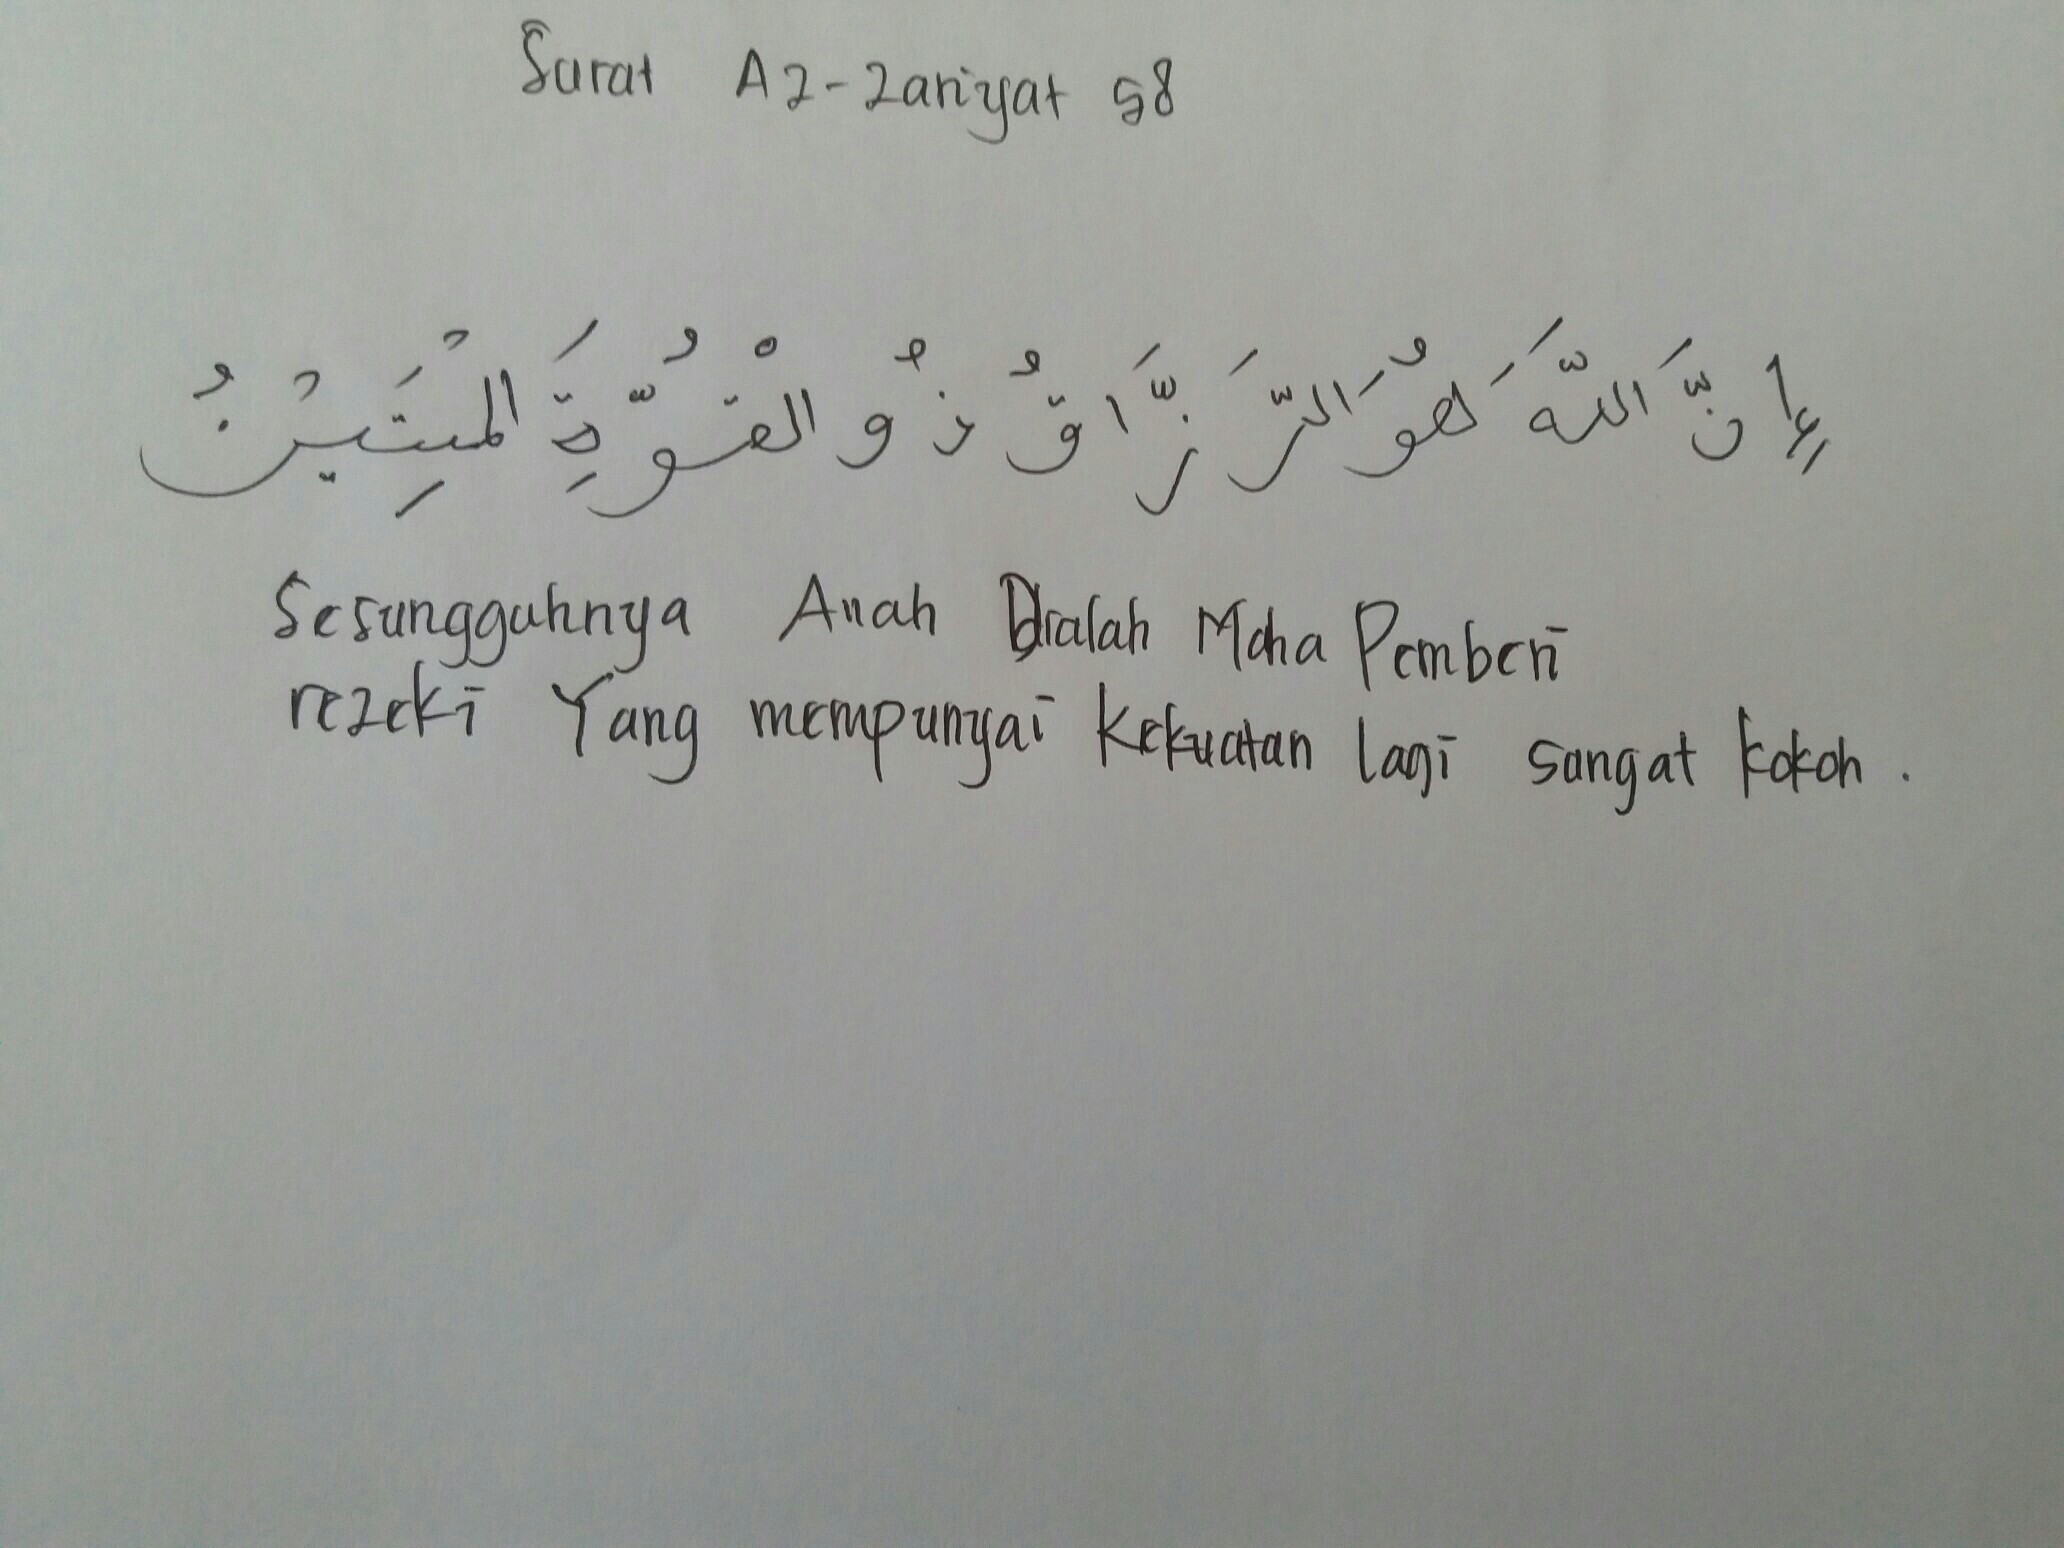 Surat Az-Zariyat 58
إِنَّ اللَّهَ هُوَ الرَّزَّاقُ ذُو الْقُوَّةِ الْمَتِيْنُ
Sesungguhnya Allah Dialah Maha Pemberi
rezeki Yang mempunyai kekuatan lagi sangat kokoh.